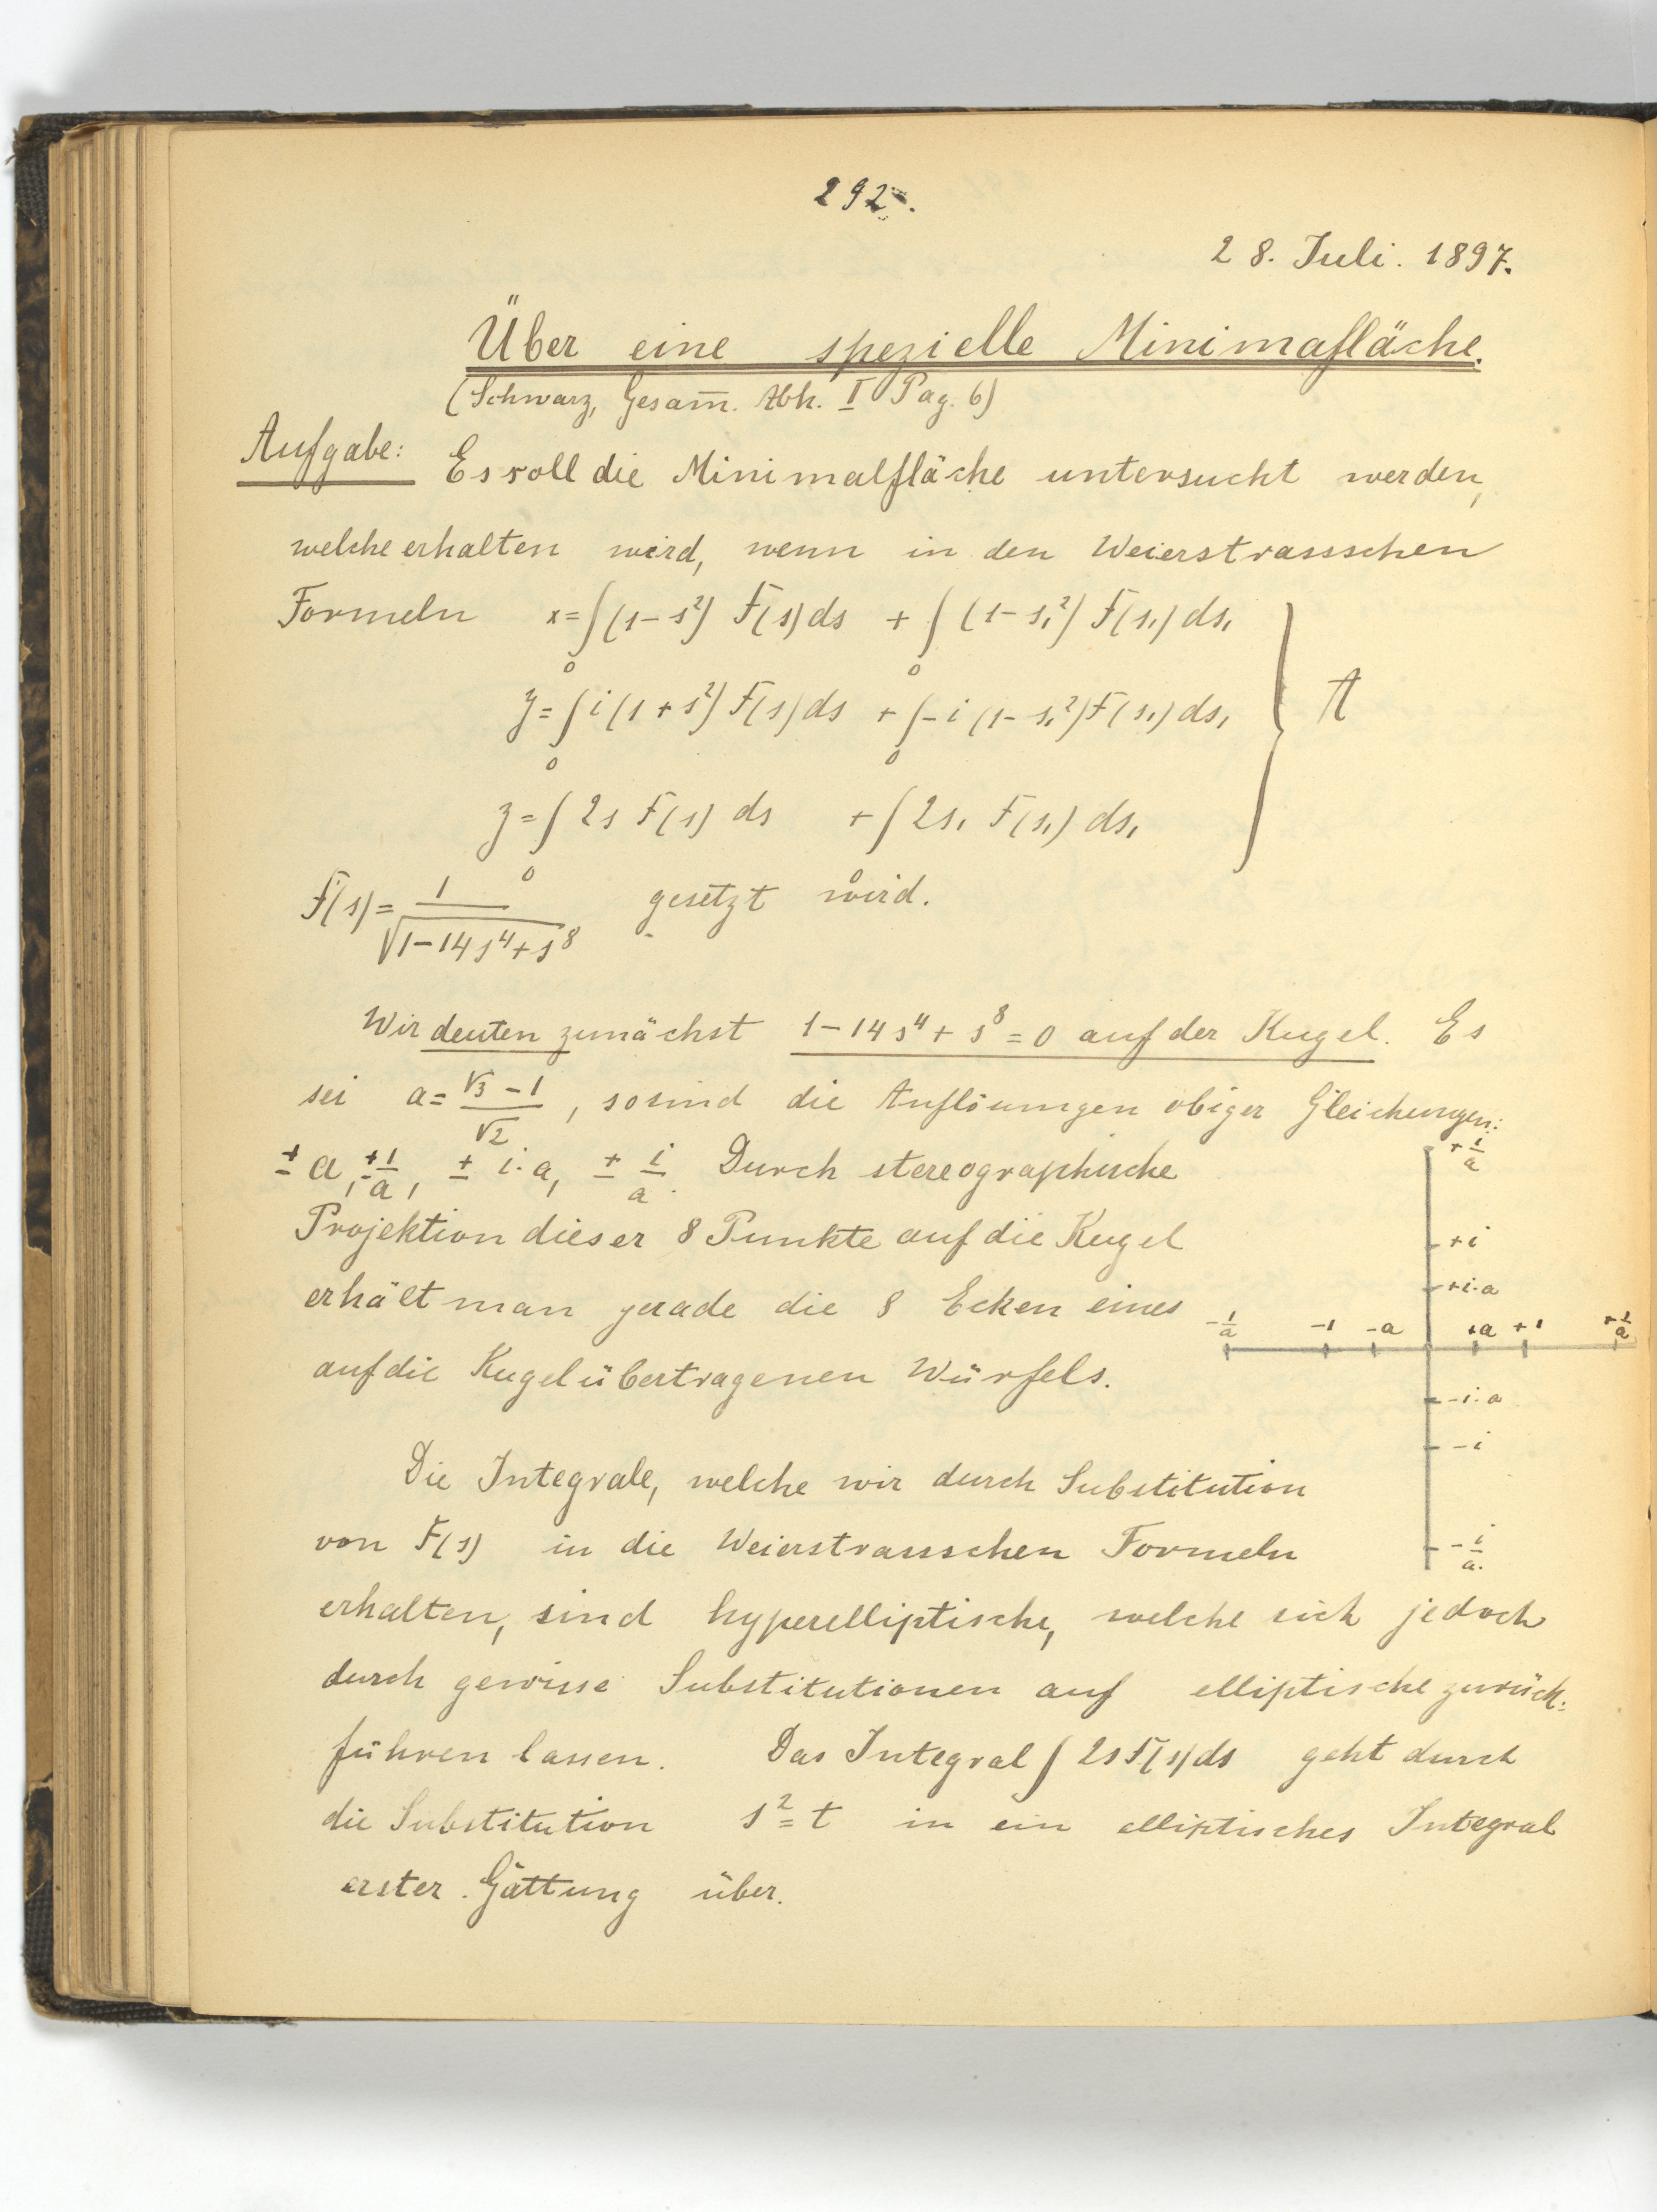 292.
28. Juli. 1897.
Über eine spezielle Minimafläche.
(Schwarz, Gesam̅. Abh. I Pag. 6)
Aufgabe: Es soll die Minimalfläche untersucht werden,
welche erhalten wird, wenn in den Weierstrassschen
Formeln x=∫₀(1-s²) F(s)ds + ∫₀(1-s₁²) F(s₁)ds₁
y=∫₀ i(1+s²)F(s)ds + ∫₀-i(1-s₁²)F(s₁)ds₁ } A
z=∫₀ 2s F(s) ds + ∫₀ 2s₁ F(s₁) ds₁
F(s)= 1/√(1-14s⁴+s⁸) gesetzt wird.
Wir deuten zunächst 1-14s⁴+s⁸=0 auf der Kugel. Es
sei a= (√3-1)/√2, so sind die Auflösungen obiger Gleichungen:
± a, ± 1/a, ± i·a, ± i/a. Durch stereographische
Projektion dieser 8 Punkte auf die Kugel
erhält man gerade die 8 Ecken eines
auf die Kugel übertragenen Würfels.
+ 1/a
+i
+i·a
- 1/a -1 -a +a +1 + 1/a
-i·a
-i
- i/a.
Die Integrale, welche wir durch Substitution
von F(s) in die Weierstrassschen Formeln
erhalten, sind hyperelliptische, welche sich jedoch
durch gewisse Substitutionen auf elliptische zurück-
führen lassen. Das Integral ∫ 2s F(s)ds geht durch
die Substitution s²=t in ein elliptisches Integral
erster Gattung über.